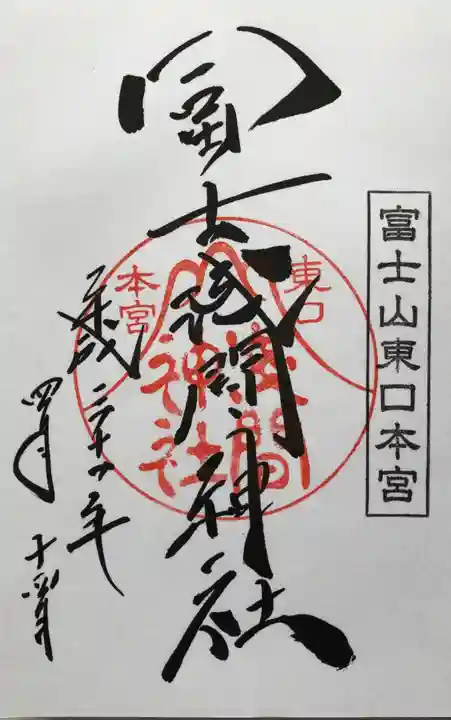 富士山東口本宮
冨士浅間神社
東口
本宮
浅間
神社
平成
年
四月
十